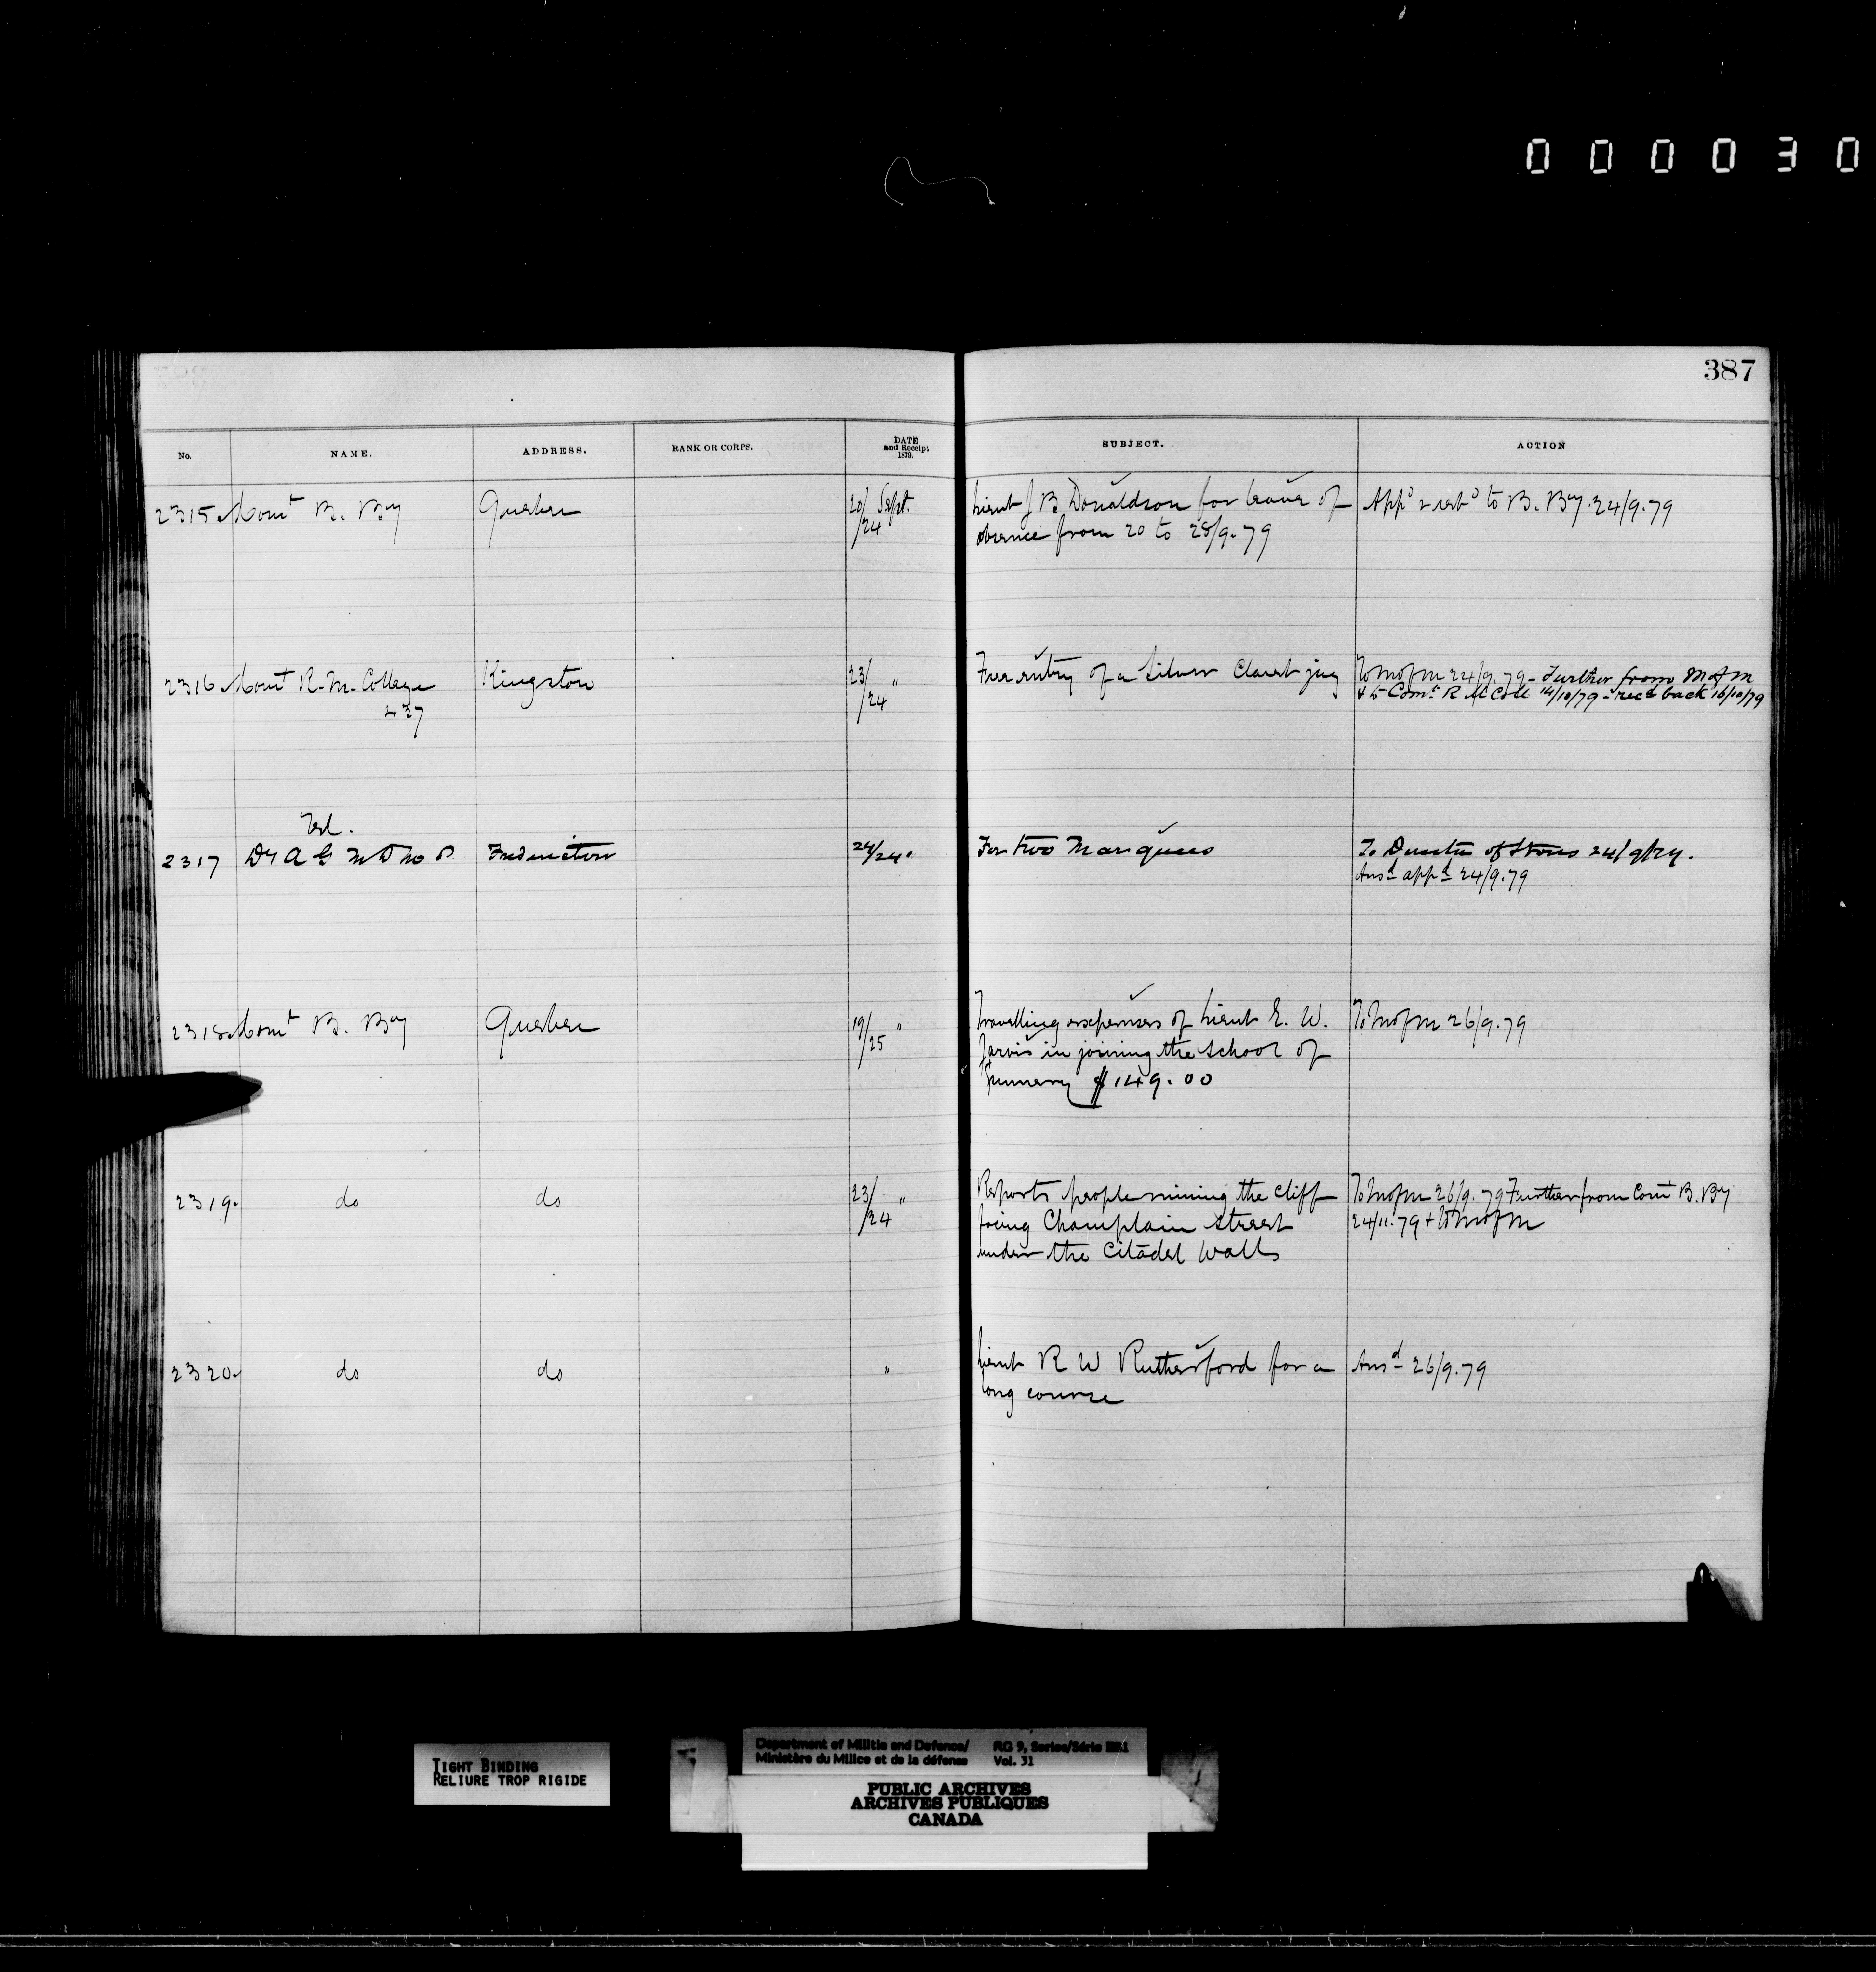 000030
387
No. NAME. ADDRESS. RANK OR CORPS. DATE and Receipt 1879. SUBJECT. ACTION
2315 Comt B. Bty Quebec 20/24 Sept. Lieut J B Donaldson for leave of
absence from 20 to 28/9.79
Appd & retd to B. Bty 24/9.79
2316 Comt R. M. College Kingston 23/24 " Free entry of a Silver Claret jug
437
To M of M 24/9.79 - Further from M of M
& to Comt R M Coll 14/10/79 - recd back 16/10/79
Tel.
2317 D A G M D No 8 Fredericton 24/24 " For two Marquees
To Director of Stores 24/9/79.
Ansd appd 24/9.79
2318 Comt B. Bty Quebec 19/25 " Travelling expenses of Lieut E. W.
Jarvis in joining the School of
Gunnery $149.00
To M of M 26/9.79
2319. do do 23/24 " Reports people mining the cliff
facing Champlain Street
under the Citadel Walls
To M of M 26/9.79 Further from Comt B. Bty
24/11.79 + to M of M
2320 do do " Lieut R W Rutherford for a
long course
Ansd 26/9.79
TIGHT BINDING
RELIURE TROP RIGIDE
Department of Militia and Defence/ RG 9, Series/Série
Ministère du Milice et de la défense Vol. 31
PUBLIC ARCHIVES
ARCHIVES PUBLIQUES
CANADA